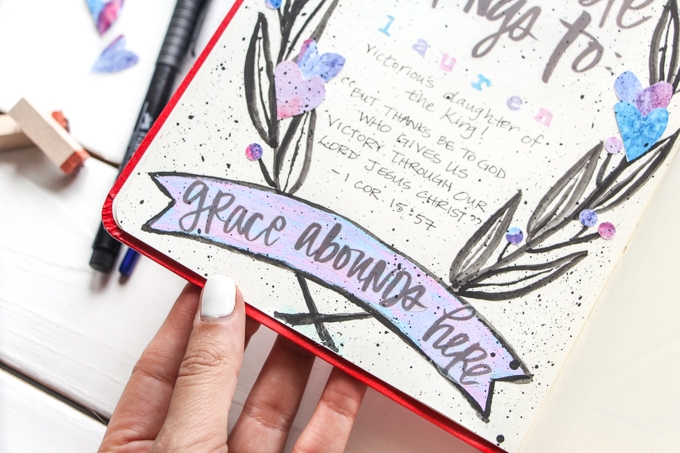 ngs to:
lauren
victorious daughter of
the King!
"BUT THANKS BE TO GOD
WHO GIVES US
VICTORY THROUGH OUR
LORD JESUS CHRIST"
- 1 COR. 15:57
grace abounds here